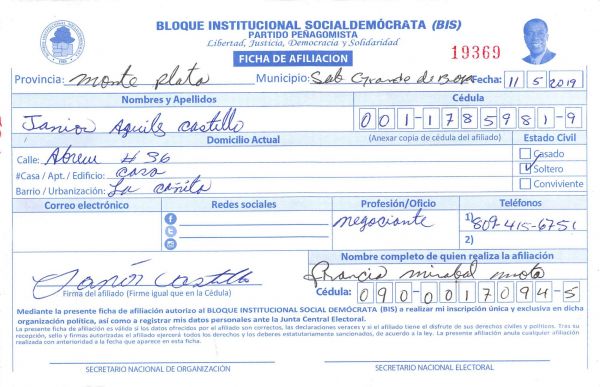 BLOQUE INSTITUCIONAL SOCIALDEMÓCRATA (BIS)
PARTIDO PEÑAGOMISTA
Libertad, Justicia, Democracia y Solidaridad
FICHA DE AFILIACION
19369
Provincia: Monte Plata Municipio: Sab Grande de Boya Fecha: 11 5 2019
Nombres y Apellidos Cédula
Janior Aquiles Castillo 001-1785981-9
Domicilio Actual (Anexar copia de cédula del afiliado) Estado Civil
Calle: Abreu #36 Casado
#Casa / Apt. / Edificio: Casa Soltero
Barrio / Urbanización: La Cañita Conviviente
Correo electrónico Redes sociales Profesión/Oficio Teléfonos
negociante 1) 809-415-6751
2)
Nombre completo de quien realiza la afiliación
Janior Castillo Francia mirabal mota
Firma del afiliado (Firme igual que en la Cédula) Cédula: 090-0017094-5
Mediante la presente ficha de afiliación autorizo al BLOQUE INSTITUCIONAL SOCIAL DEMÓCRATA (BIS) a realizar mi inscripción única y exclusiva en dicha
organización política, así como a registrar mis datos personales ante la Junta Central Electoral.
La presente ficha de afiliación es válida si los datos ofrecidos por el afiliado son correctos, las declaraciones veraces y si el afiliado tiene el disfrute de sus derechos civiles y políticos. Tras su
recepción, sello y firmas autorizadas el afiliado ejercerá todos los derechos y los deberes estatutariamente sancionados, de acuerdo a la ley. La presente afiliación anula cualquier afiliación
realizada con anterioridad a la fecha que aparece en esta ficha.
SECRETARIO NACIONAL DE ORGANIZACIÓN SECRETARIO NACIONAL ELECTORAL